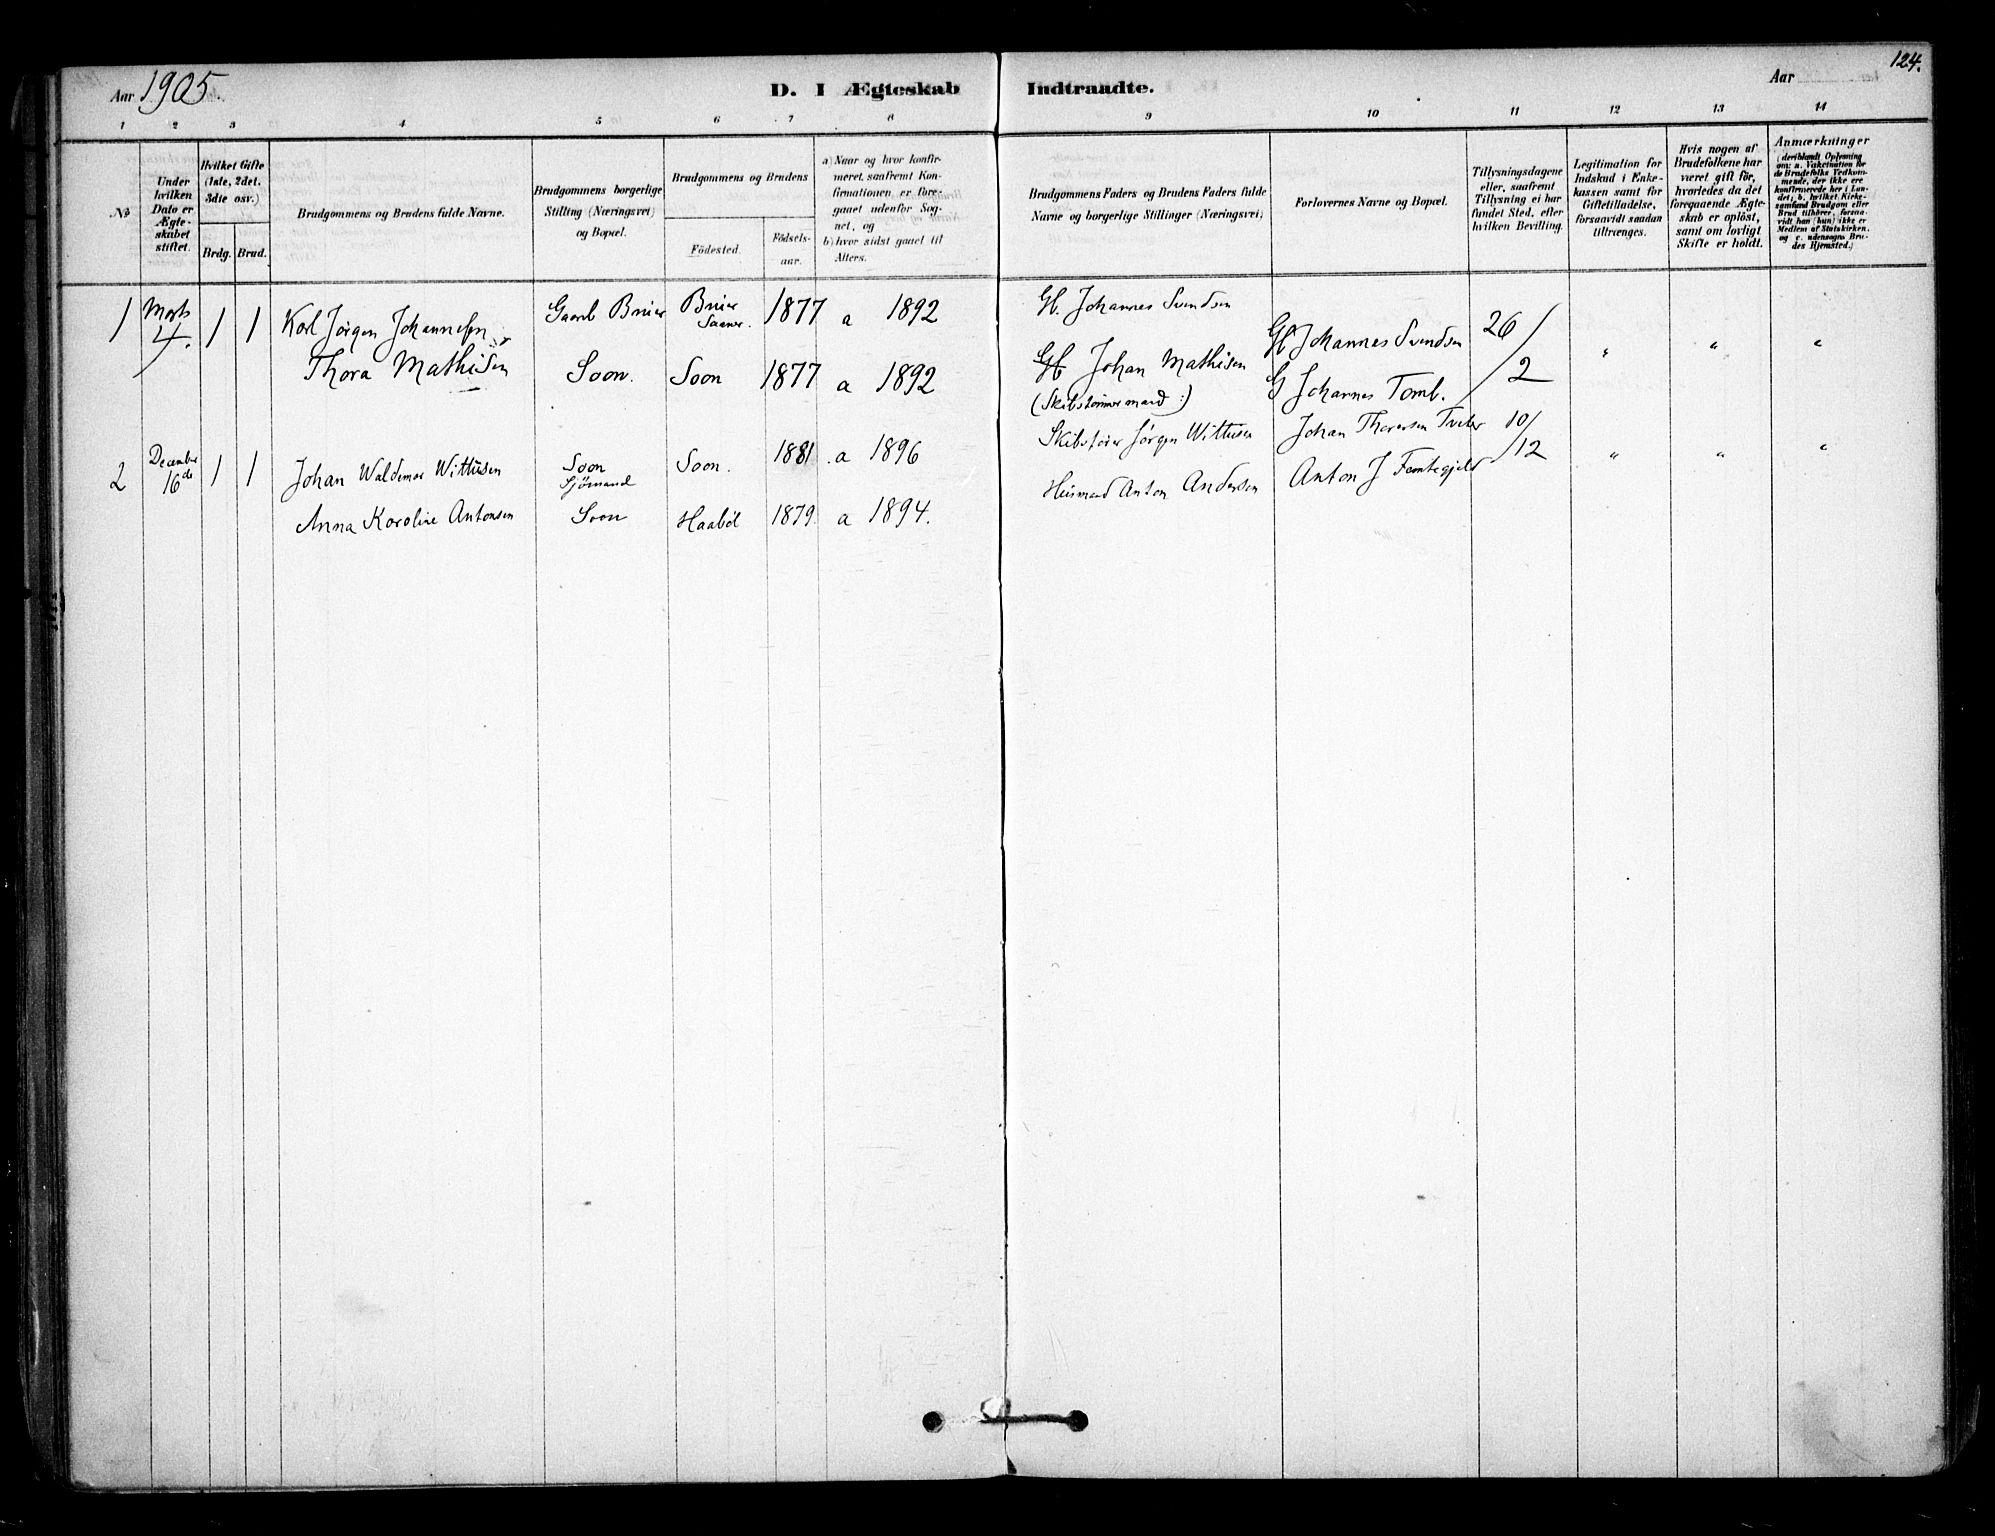 124.
Aar 1905.
D. I Ægteskab Indtraadte.
Aar
1 2 3 4 5 6 7 8 9 10 11 12 13 14
№
Under
hvilken
Dato er
Ægte-
skabet
stiftet.
Hvilket Gifte
(1ste, 2det,
3die osv.)
Brdg. Brud.
Brudgommens og Brudens fulde Navne.
Brudgommens borgerlige
Stilling (Næringsvei)
og Bopæl.
Brudgommens og Brudens
Födested.
Födsels-
aar.
a) Naar og hvor konfir-
meret, saafremt Kon-
firmationen er fore-
gaaet udenfor Sog-
net, og
b) hvor sidst gaaet til
Alters.
Brudgommens Faders og Brudens Faders fulde
Navne og borgerlige Stillinger (Næringsvei)
Forlovernes Navne og Bopæl.
Tillysningsdagene
eller, saafremt
Tillysning ei har
fundet Sted, efter
hvilken Bevilling.
Legitimation for
Indskud i Enke-
kassen samt for
Giftetilladelse,
forsaavidt saadan
tiltrænges.
Hvis nogen af
Brudefolkene har
været gift för,
hvorledes da det
foregaaende Ægte-
skab er oplöst,
samt om lovligt
Skifte er holdt.
Anmærkninger
(deriblandt Oplysning
om: a. Vakcination for
de Brudefolks Vedkom-
mende, der ikke ere
konfirmerede her i Lan-
det; b. hvilket Kirke-
samfund Brudgom eller
Brud tilhörer, forsaa-
vidt han (hun) ikke er
Medlem af Statskirken,
og c. udensogns Bru-
des Hjemsted.)
1 Marts 4. 1 1 Karl Jørgen Johannesen Gaarb Bruer Bruer Saaner. 1877 a 1892 Gb. Johannes Svendsen Gb Johannes Svendsen 26/2 " " "
Thora Mathisen Soon. Soon 1877 a 1892 Gb Johan Mathisen G Johannes Tomb.
(Skibstømmermand :)
2 December 16de 1 1 Johan Waldemar Wittusen Soon Sjømand Soon. 1881 a 1896 Skibsfører Jørgen Wittusen Johan Thoresen Tveter 10/12 " " "
Anna Karoline Antonsen Soon Haaböl 1879. a 1894. Husmand Anton Andersen Anton J